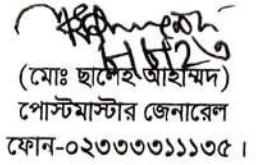 (মোঃ ছালেহ আহাম্মদ)
পোস্টমাস্টার জেনারেল
ফোন-০২৩৩৩৩১১১৩৫।